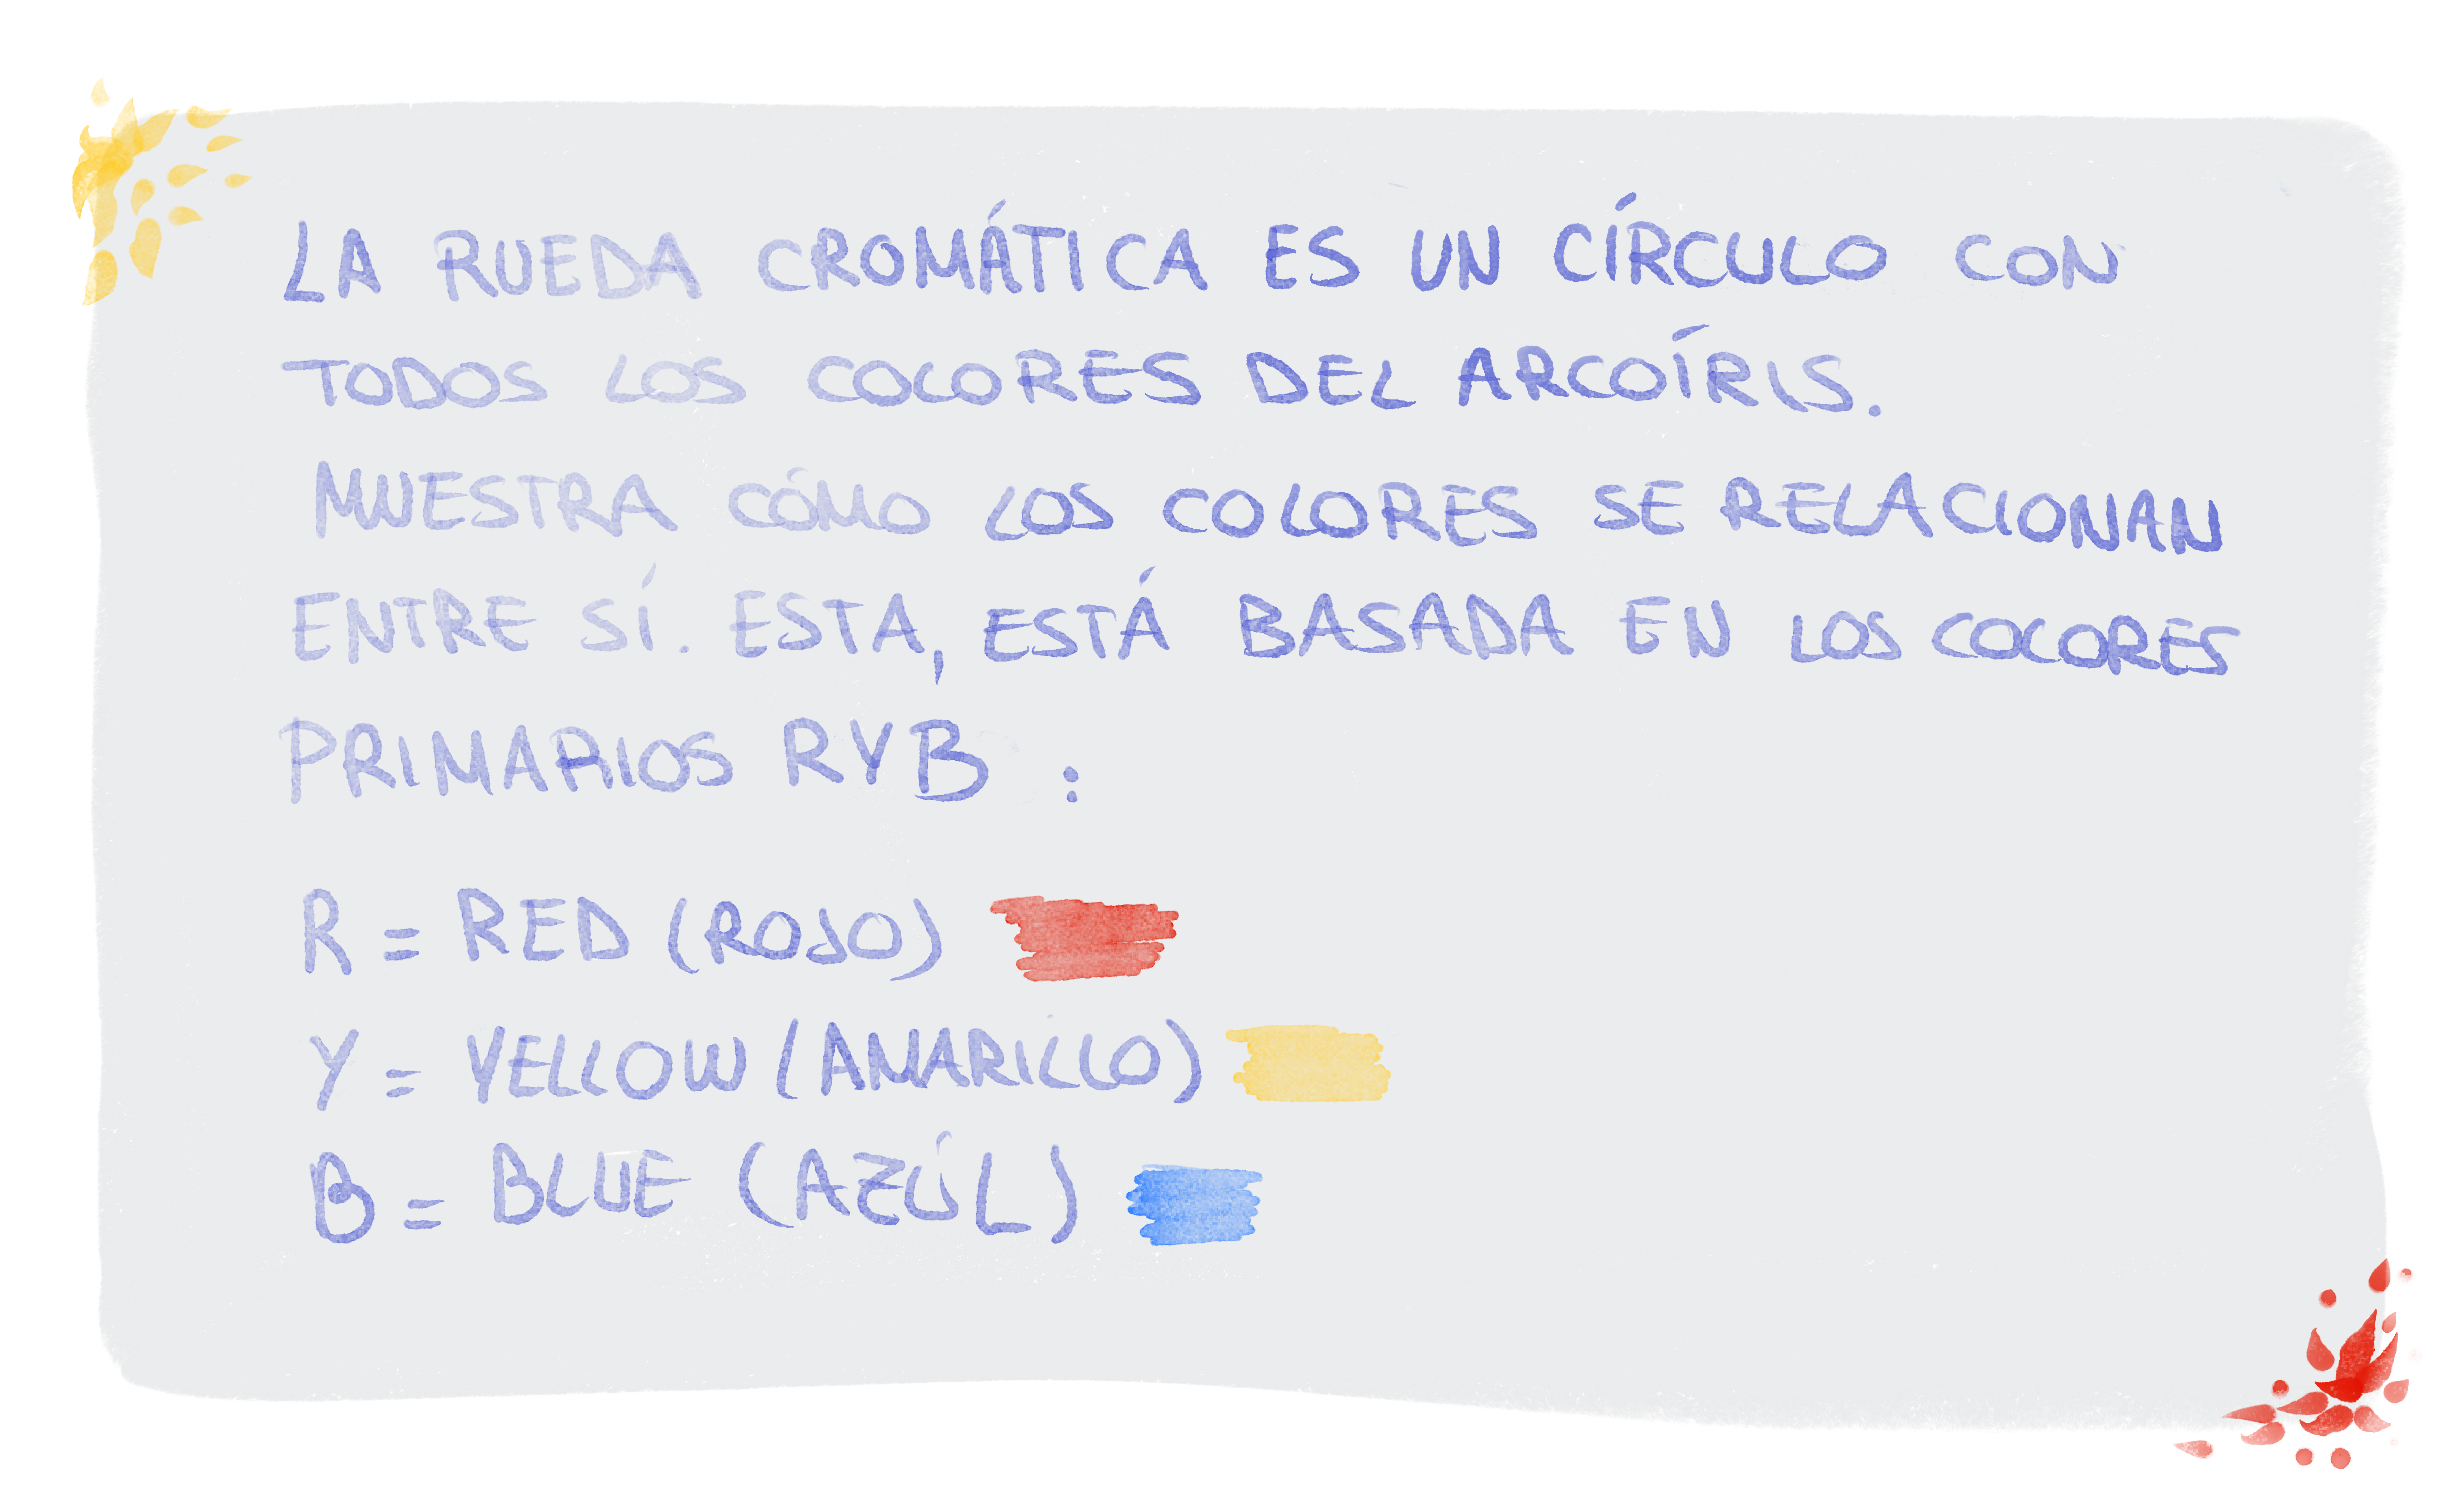 LA RUEDA CROMÁTICA ES UN CÍRCULO CON
TODOS LOS COLORES DEL ARCOÍRIS.
MUESTRA CÓMO LOS COLORES SE RELACIONAN
ENTRE SÍ. ESTA, ESTÁ BASADA EN LOS COLORES
PRIMARIOS RYB :
R = RED (ROJO)
Y = YELLOW (AMARILLO)
B = BLUE (AZÚL)